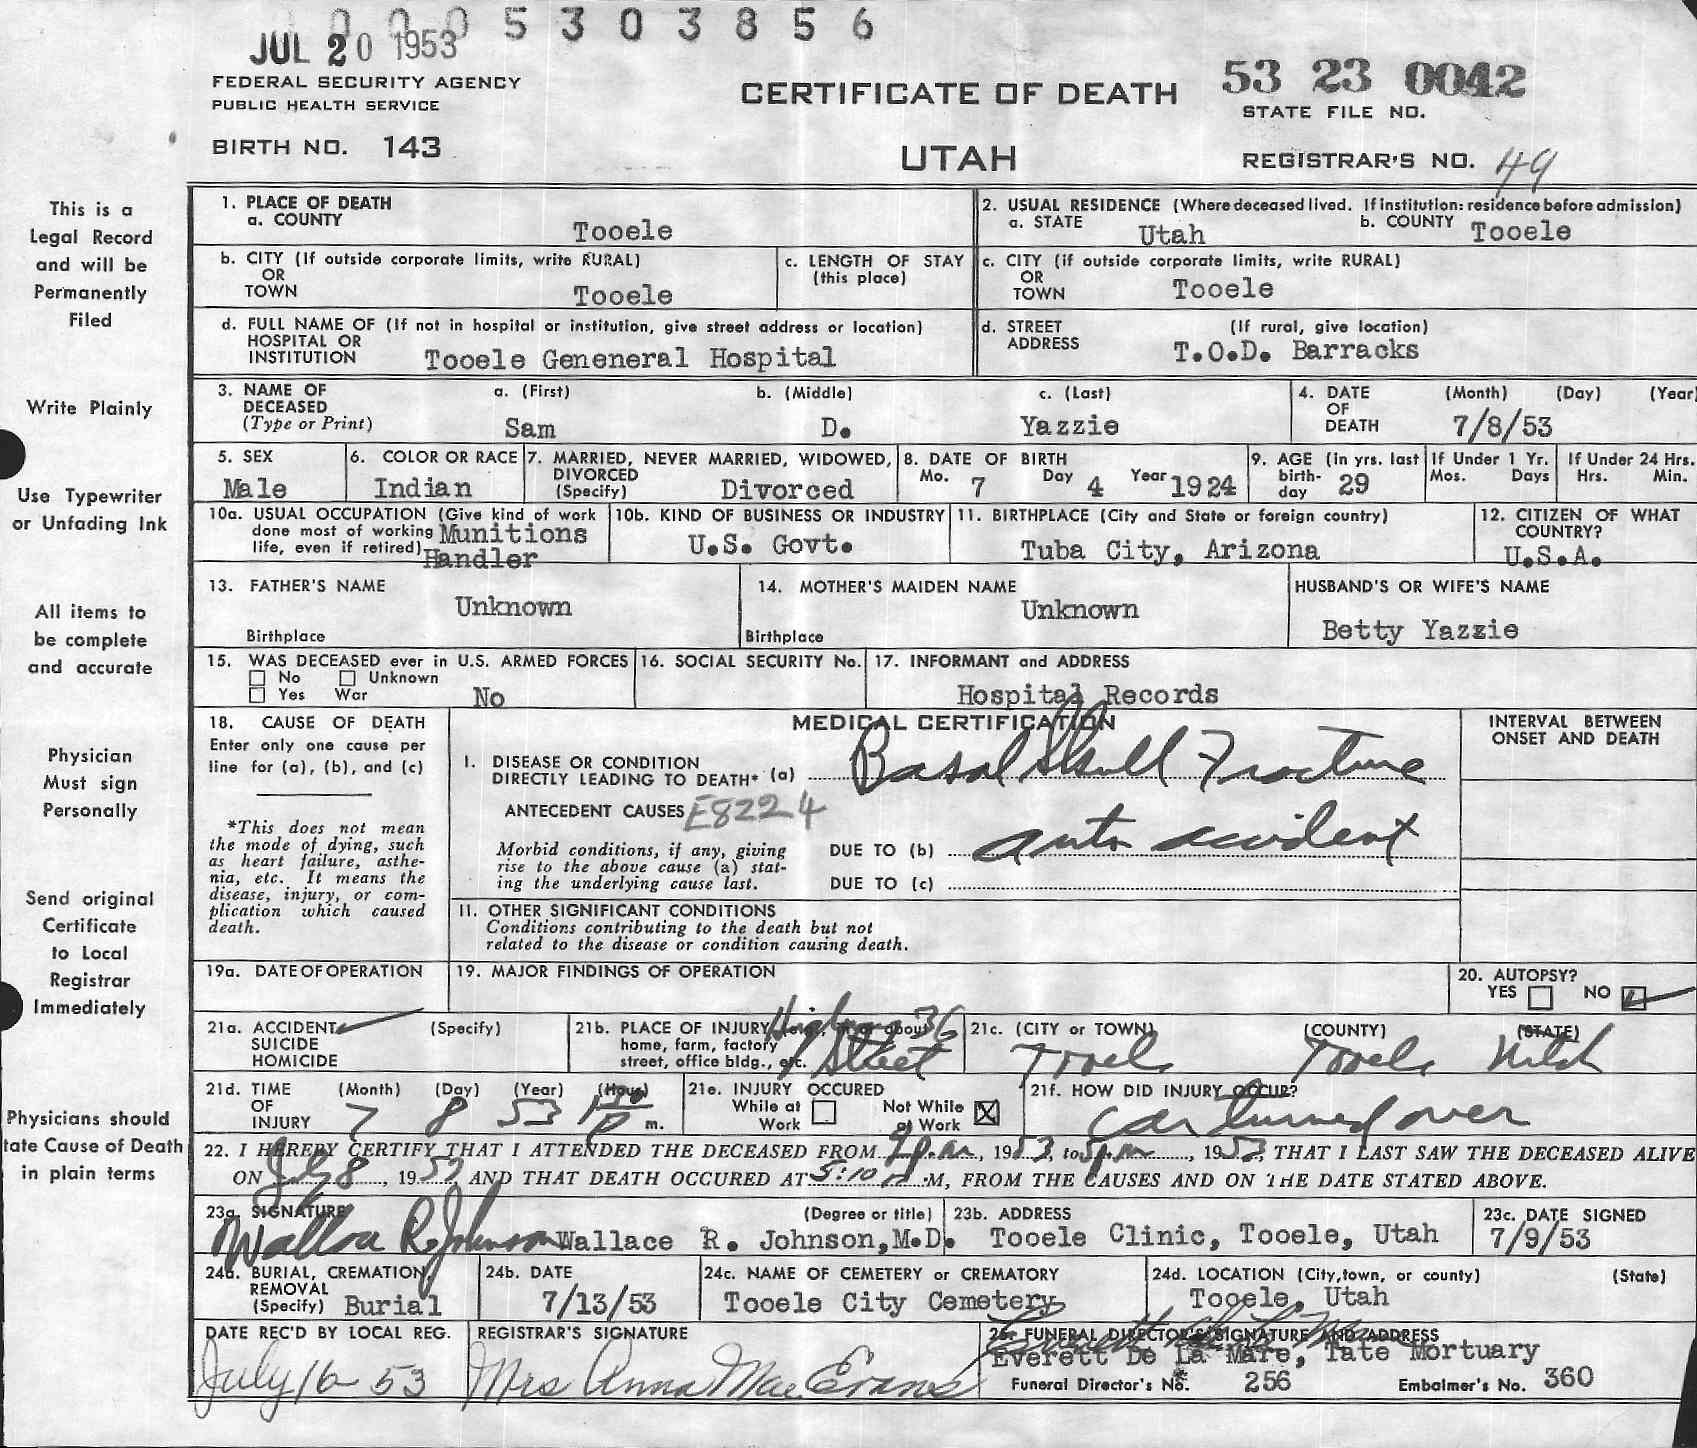 0005303856
JUL 20 1953
FEDERAL SECURITY AGENCY
PUBLIC HEALTH SERVICE
BIRTH NO. 143
CERTIFICATE OF DEATH
UTAH
53 23 0042
STATE FILE NO.
REGISTRAR'S NO. 49
This is a
Legal Record
and will be
Permanently
Filed
Write Plainly
Use Typewriter
or Unfading Ink
All items to
be complete
and accurate
Physician
Must sign
Personally
Send original
Certificate
to Local
Registrar
Immediately
Physicians should
tate Cause of Death
in plain terms
1. PLACE OF DEATH
a. COUNTY
Tooele
2. USUAL RESIDENCE (Where deceased lived. If institution: residence before admission)
a. STATE Utah b. COUNTY Tooele
b. CITY (If outside corporate limits, write RURAL)
OR
TOWN Tooele
c. LENGTH OF STAY
(this place)
c. CITY (if outside corporate limits, write RURAL)
OR
TOWN Tooele
d. FULL NAME OF (If not in hospital or institution, give street address or location)
HOSPITAL OR
INSTITUTION Tooele Geneneral Hospital
d. STREET (If rural, give location)
ADDRESS T.O.D. Barracks
3. NAME OF a. (First) b. (Middle) c. (Last)
DECEASED
(Type or Print) Sam D. Yazzie
4. DATE (Month) (Day) (Year)
OF
DEATH 7/8/53
5. SEX
Male
6. COLOR OR RACE
Indian
7. MARRIED, NEVER MARRIED, WIDOWED,
DIVORCED
(Specify) Divorced
8. DATE OF BIRTH
Mo. 7 Day 4 Year 1924
9. AGE (in yrs. last
birth-
day 29
If Under 1 Yr.
Mos. Days
If Under 24 Hrs.
Hrs. Min.
10a. USUAL OCCUPATION (Give kind of work
done most of working Munitions
life, even if retired) Handler
10b. KIND OF BUSINESS OR INDUSTRY
U.S. Govt.
11. BIRTHPLACE (City and State or foreign country)
Tuba City, Arizona
12. CITIZEN OF WHAT
COUNTRY?
U.S.A.
13. FATHER'S NAME
Unknown
Birthplace
14. MOTHER'S MAIDEN NAME
Unknown
Birthplace
HUSBAND'S OR WIFE'S NAME
Betty Yazzie
15. WAS DECEASED ever in U.S. ARMED FORCES
No Unknown
Yes War No
16. SOCIAL SECURITY No.
17. INFORMANT and ADDRESS
Hospital Records
18. CAUSE OF DEATH
Enter only one cause per
line for (a), (b), and (c)
*This does not mean
the mode of dying, such
as heart failure, asthe-
nia, etc. It means the
disease, injury, or com-
plication which caused
death.
MEDICAL CERTIFICATION
I. DISEASE OR CONDITION
DIRECTLY LEADING TO DEATH* (a) Basal Skull Fracture
ANTECEDENT CAUSES E8224
Morbid conditions, if any, giving
rise to the above cause (a) stat-
ing the underlying cause last.
DUE TO (b) auto accident
DUE TO (c)
11. OTHER SIGNIFICANT CONDITIONS
Conditions contributing to the death but not
related to the disease or condition causing death.
INTERVAL BETWEEN
ONSET AND DEATH
19a. DATE OF OPERATION
19. MAJOR FINDINGS OF OPERATION
20. AUTOPSY?
YES NO
21a. ACCIDENT (Specify)
SUICIDE
HOMICIDE
21b. PLACE OF INJURY (e.g., in or about
home, farm, factory
street, office bldg., etc.
Highway 36
Street
21c. (CITY or TOWN) (COUNTY) (STATE)
Tooele Tooele Utah
21d. TIME (Month) (Day) (Year) (Hour)
OF
INJURY 7 8 53 m.
21e. INJURY OCCURED
While at Not While
Work at Work
21f. HOW DID INJURY OCCUR?
Car turned over
22. I HEREBY CERTIFY THAT I ATTENDED THE DECEASED FROM , 1953, to 5 pm, 1953, THAT I LAST SAW THE DECEASED ALIVE
ON July 8, 1953, AND THAT DEATH OCCURED AT 5:10 P.M, FROM THE CAUSES AND ON THE DATE STATED ABOVE.
23a. SIGNATURE (Degree or title)
Wallace R. Johnson Wallace R. Johnson, M.D.
23b. ADDRESS
Tooele Clinic, Tooele, Utah
23c. DATE SIGNED
7/9/53
24a. BURIAL, CREMATION,
REMOVAL
(Specify) Burial
24b. DATE
7/13/53
24c. NAME OF CEMETERY or CREMATORY
Tooele City Cemetery
24d. LOCATION (City, town, or county) (State)
Tooele, Utah
DATE REC'D BY LOCAL REG.
July 16 53
REGISTRAR'S SIGNATURE
Mrs Anna Mae Evans
25. FUNERAL DIRECTOR'S SIGNATURE AND ADDRESS
Everett De La Mare
Everett De La Mare, Tate Mortuary
Funeral Director's No. 256 Embalmer's No. 360